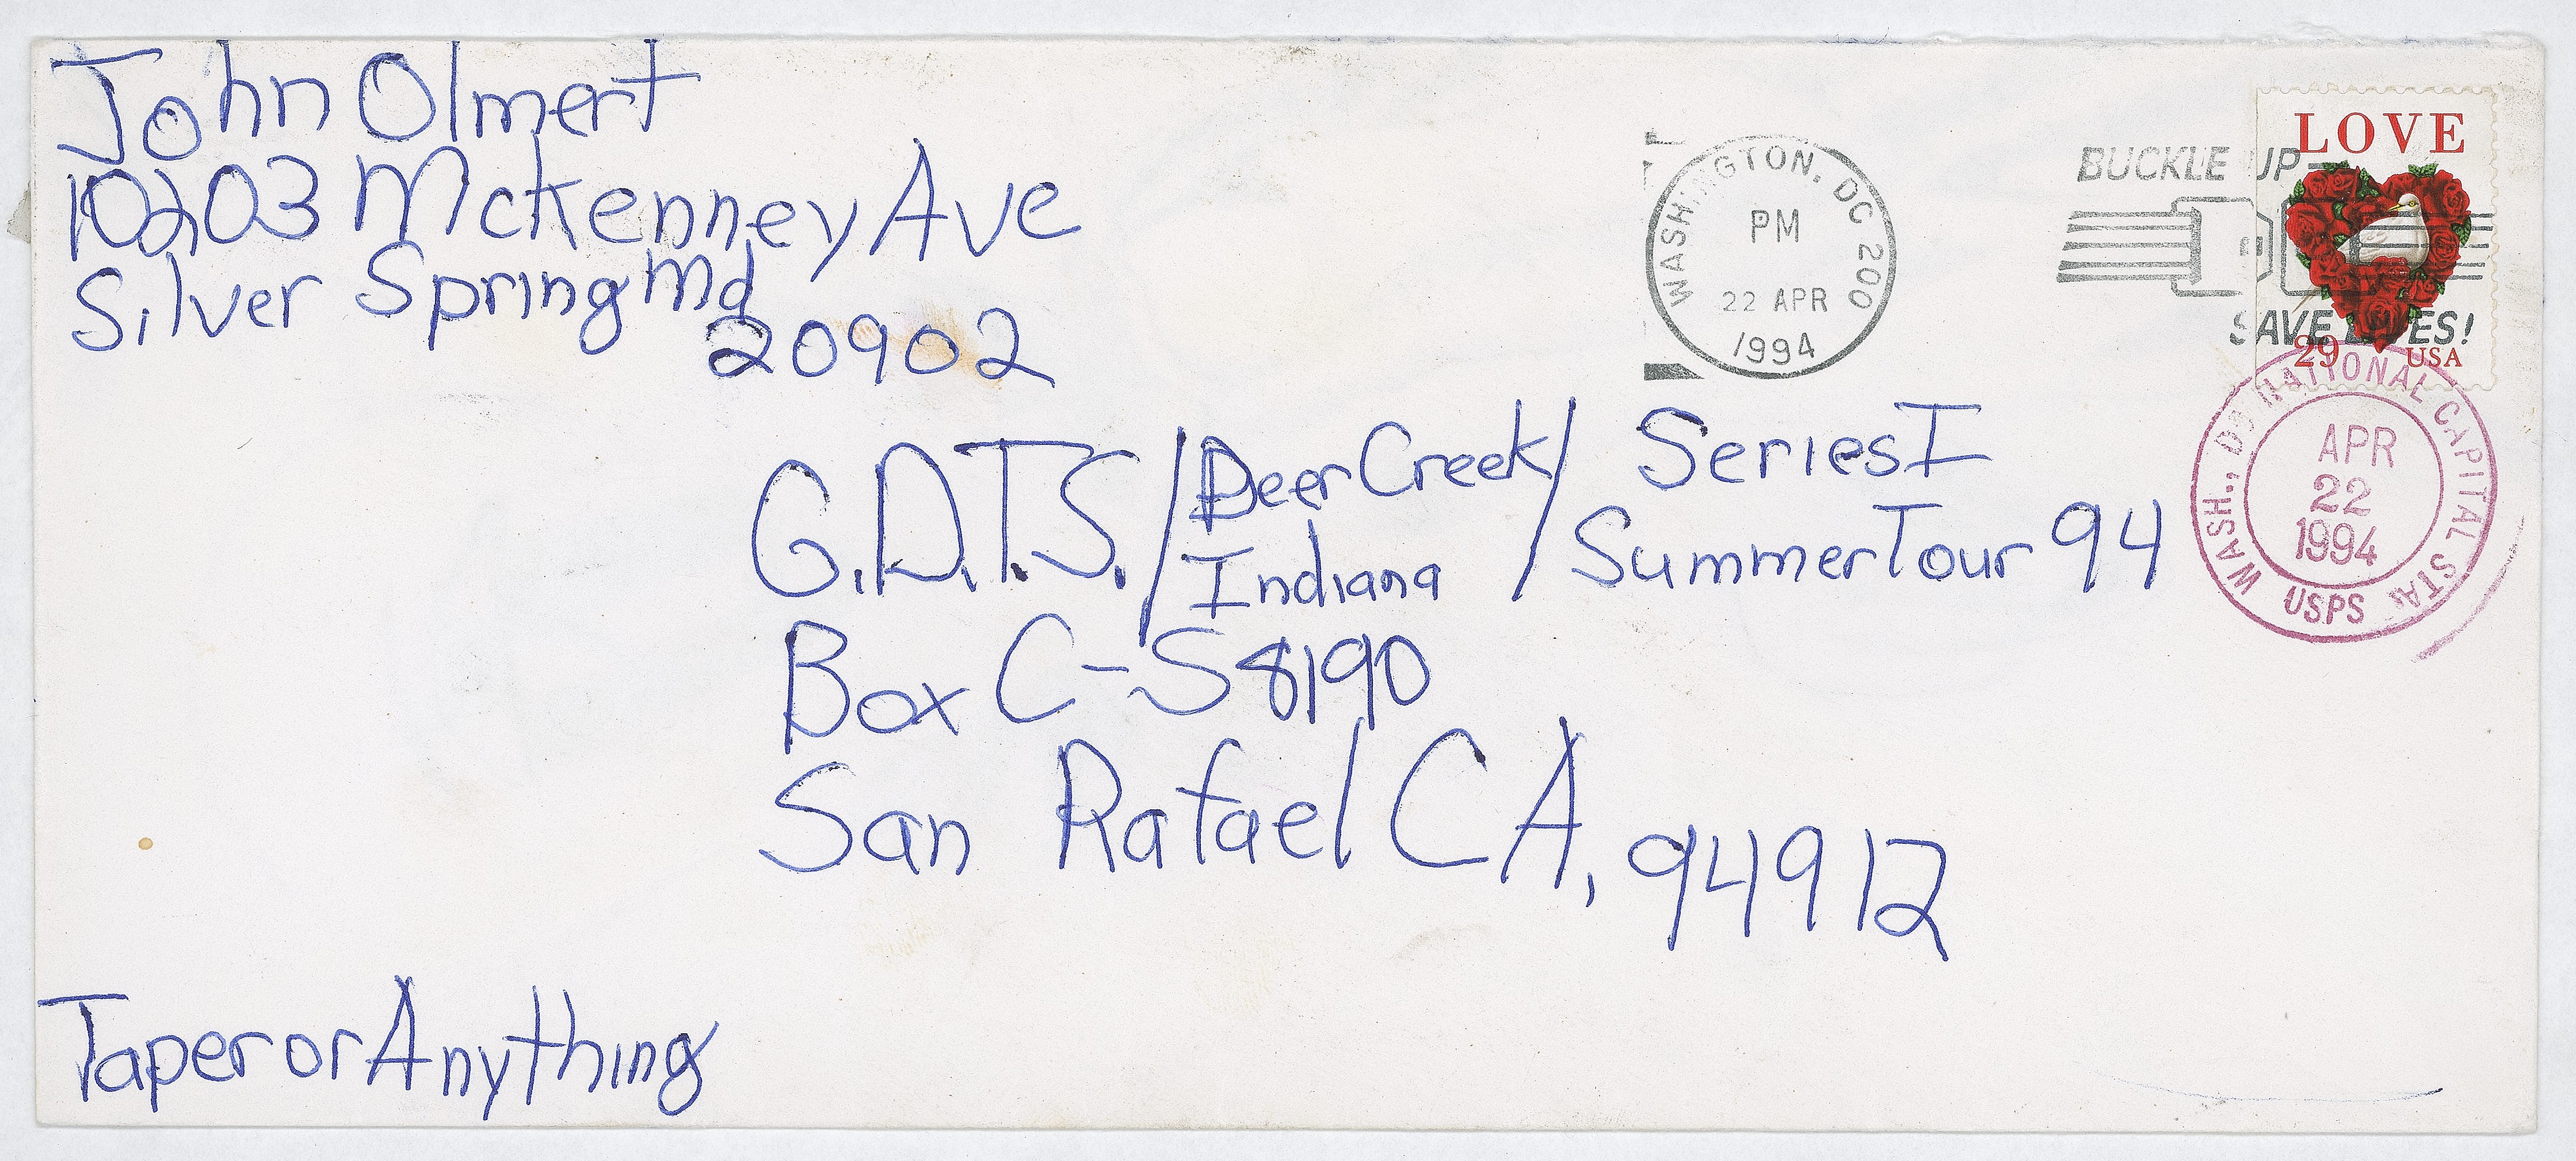 John Olmert
10203 Mckenney Ave
Silver Spring Md
20902
G.D.T.S. / Deer Creek / Series I
Indiana / Summer Tour 94
Box C-S 8190
San Rafael CA, 94912
Taper or Anything
WASHINGTON, DC 200
PM
22 APR
1994
BUCKLE UP
SAVE LIVES!
LOVE
29 USA
WASH., DC NATIONAL CAPITAL STA
APR
22
1994
USPS